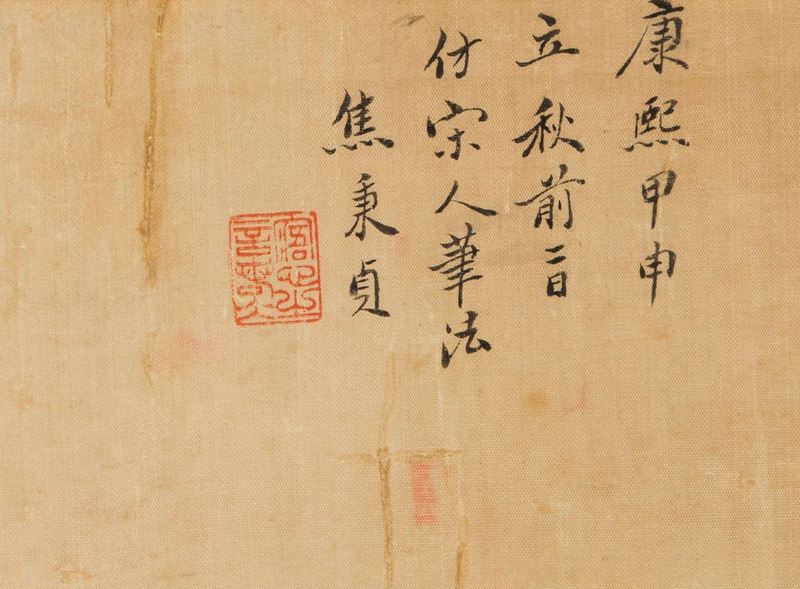 康熙甲申
立秋前二日
仿宋人筆法
焦秉貞